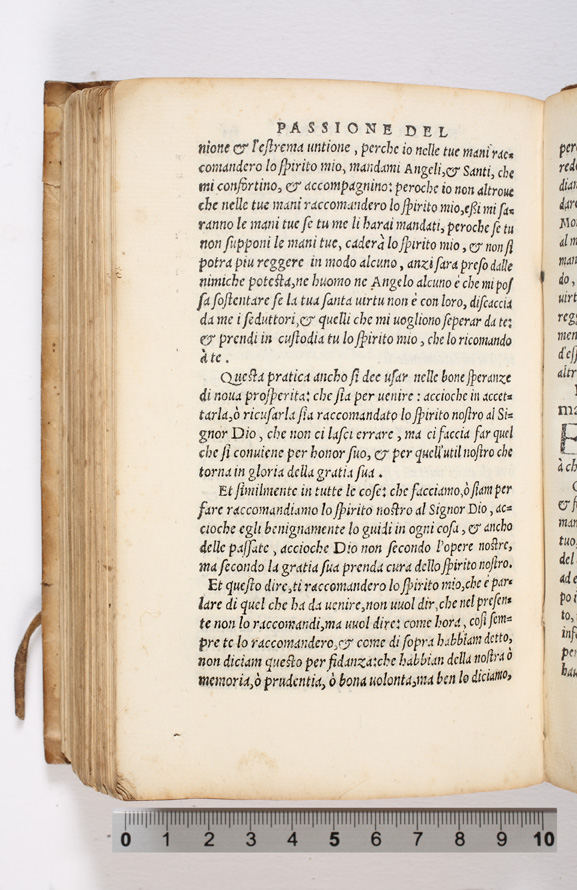 PASSIONE DEL
nione & l'eſtrema untione, perche io nelle tue mani rac=
comandero lo ſpirito mio, mandami Angeli, & Santi, che
mi confortino, & accompagnino: peroche io non altroue
che nelle tue mani raccomandero lo ſpirito mio, eßi mi ſa=
ranno le mani tue ſe tu me li harai mandati, peroche ſe tu
non ſupponi le mani tue, caderà lo ſpirito mio, & non ſi
potra piu reggere in modo alcuno, anzi ſara preſo dalle
nimiche poteſta, ne huomo ne Angelo alcuno è che mi poſ
ſa ſoſtentare ſe la tua ſanta uirtu non è con loro, diſcaccia
da me i ſeduttori, & quelli che mi uogliono ſeperar da te:
& prendi in cuſtodia tu lo ſpirito mio, che lo ricomando
à te.
Queſta pratica ancho ſi dee uſar nelle bone ſperanze
di noua proſperita: che ſia per uenire: accioche in accet=
tarla, ò ricuſarla ſia raccomandato lo ſpirito noſtro al Si=
gnor Dio, che non ci laſci errare, ma ci faccia far quel
che ſi conuiene per honor ſuo, & per quell'util noſtro che
torna in gloria della gratia ſua.
Et ſimilmente in tutte le coſe: che facciamo, ò ſiam per
fare raccomandiamo lo ſpirito noſtro al Signor Dio, ac=
cioche egli benignamente lo guidi in ogni coſa, & ancho
delle paſſate, accioche Dio non ſecondo l'opere noſtre,
ma ſecondo la gratia ſua prenda cura dello ſpirito noſtro.
Et queſto dire, ti raccomandero lo ſpirito mio, che è par=
lare di quel che ha da uenire, non uuol dir, che nel preſen=
te non lo raccomandi, ma uuol dire: come hora, coſi ſem=
pre te lo raccomandero, & come di ſopra habbiam detto,
non diciam queſto per fidanza: che habbian della noſtra ò
memoria, ò prudentia, ò bona uolonta, ma ben lo diciamo,
0 1 2 3 4 5 6 7 8 9 10